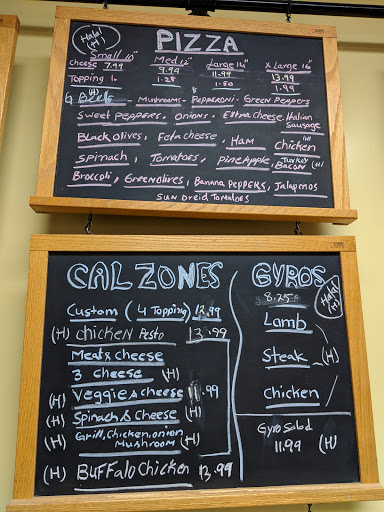 Halal (H)
PIZZA
Small 10" Med 12" Large 14" X Large 16"
Cheese 7.99 9.99 11.99 13.99
Topping 1. 1.25 1.50 1.99
& Beef (H) Mushrooms - Pepperoni - Green Peppers
Sweet Peppers, Onions, Extra cheese, Italian Sausage
Black olives, Feta cheese, Ham, Chicken (H)
Spinach, Tomatoes, Pineapple, Turkey Bacon (H)
Broccoli, Green olives, Banana Peppers, Jalapenos
SUN DREID TOMATOES
CAL ZONES
Custom (4 Topping) 12.99
(H) chicken Pesto 13.99
Meat & cheese
3 cheese (H)
(H) Veggie & cheese 11.99
(H) Spinach & Cheese (H)
(H) Grill, Chicken, onion Mushroom (H)
(H) Buffalo Chicken 13.99
GYROS
Halal (H)
8.25
Lamb
Steak (H)
Chicken
Gyro Salad
11.99 (H)